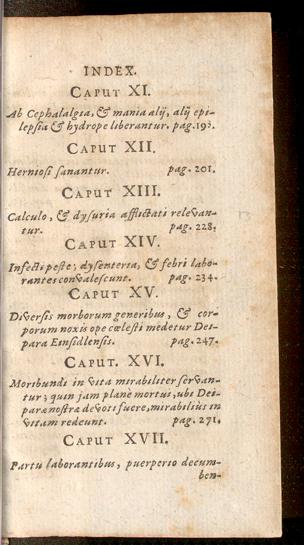 INDEX.
CAPUT XI.
Ab Cephalalgia, & mania alij, alij epi-
lepsia & hydrope liberantur. pag. 193.
CAPUT XII.
Herniosi sanantur. pag. 201.
CAPUT XIII.
Calculo, & dysuria afflictati relevan-
tur. pag. 228.
CAPUT XIV.
Infecti peste, dysenteria, & febri labo-
rantes convalescunt. pag. 234.
CAPUT XV.
Diversis morborum generibus, & cor-
porum noxis ope cœlesti medetur Dei-
para Einsidlensis. pag. 247.
CAPUT. XVI.
Moribundi in vita mirabiliter servan-
tur; quin jam plane mortui, ubi Dei-
paræ nostra devoti fuere, mirabiliùs in
vitam redeunt. pag. 271.
CAPUT XVII.
Partu laborantibus, puerperio decum-
ben-